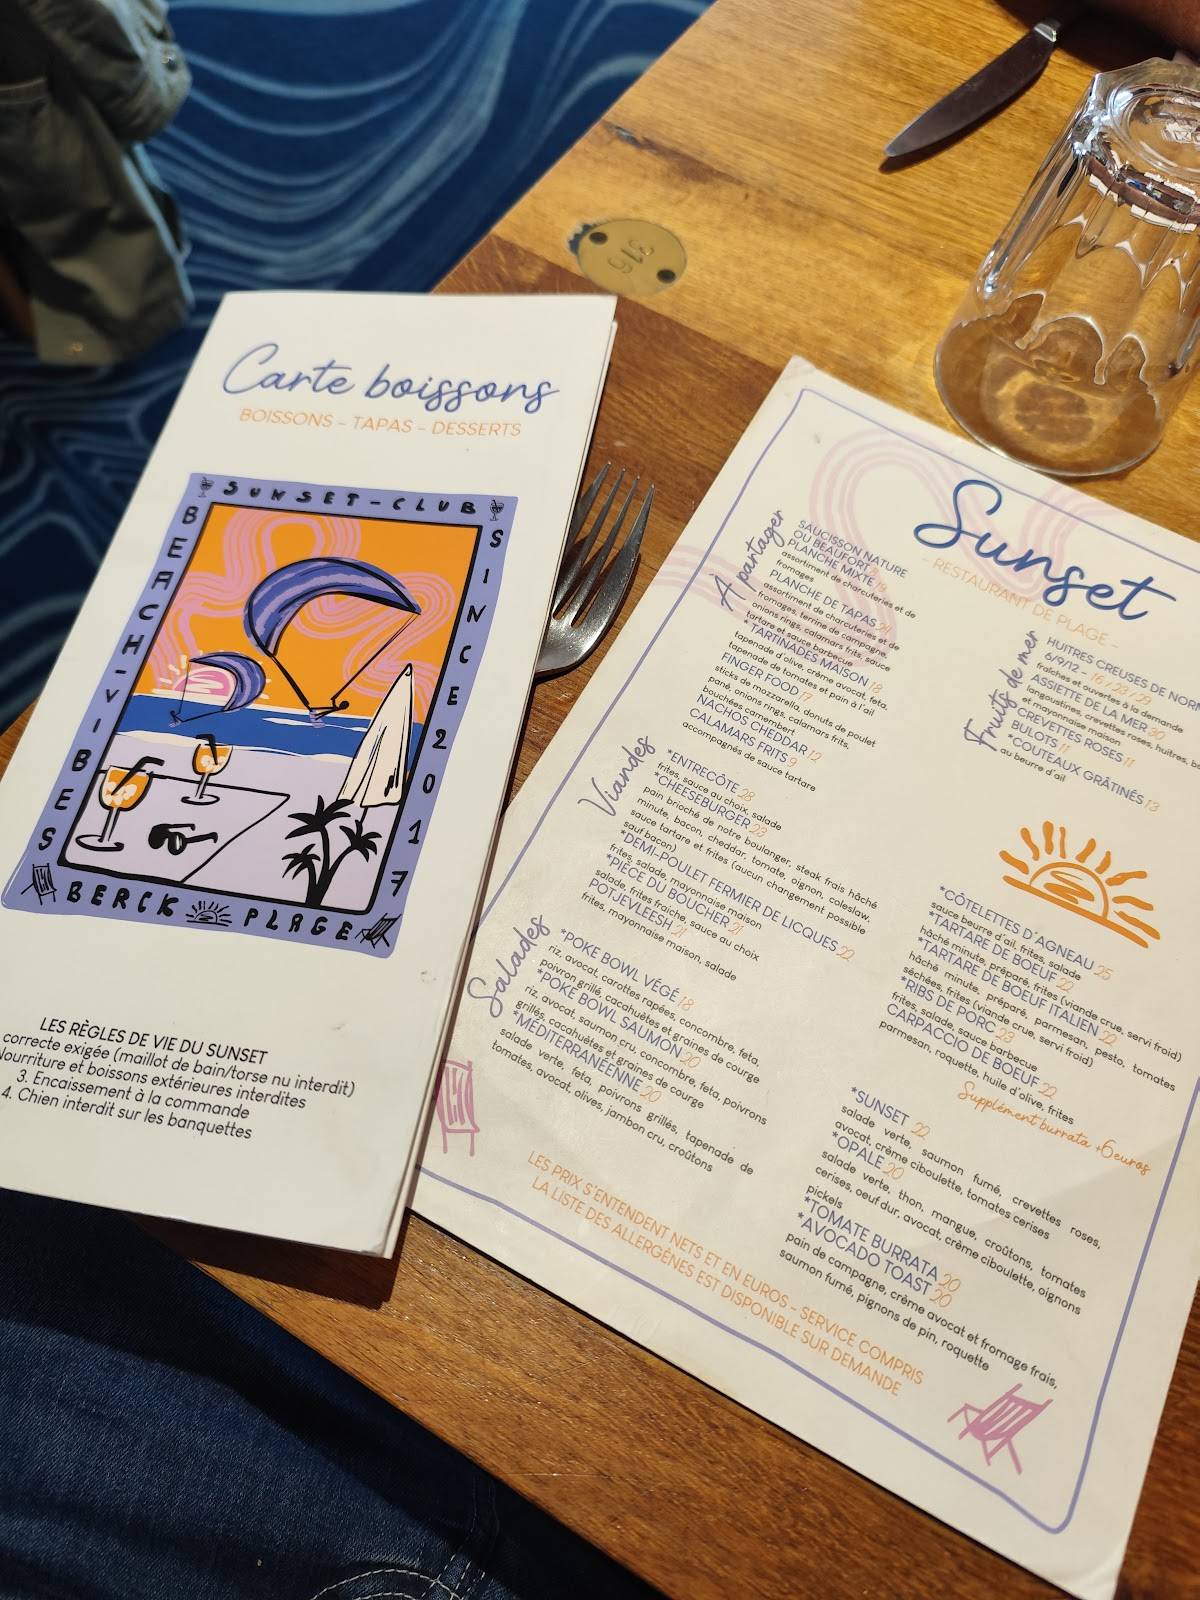 315
Carte boissons
BOISSONS - TAPAS - DESSERTS
SUNSET-CLUB
BEACH-VIBES
SINCE 2017
BERCK PLAGE
LES RÈGLES DE VIE DU SUNSET
correcte exigée (maillot de bain/torse nu interdit)
Nourriture et boissons extérieures interdites
3. Encaissement à la commande
4. Chien interdit sur les banquettes
Sunset
- RESTAURANT DE PLAGE -
À partager
SAUCISSON NATURE
OU BEAUFORT
PLANCHE MIXTE 19
assortiment de charcuteries et de
fromages
PLANCHE DE TAPAS
assortiment de charcuteries et de
fromages, terrine de campagne,
onions rings, calamars frits, sauce
tartare et sauce barbecue
*TARTINADES MAISON 18
tapenade d'olive, crème avocat, feta,
tapenade de tomates et pain à l'ail
FINGER FOOD 17
sticks de mozzarella, donuts de poulet
pané, onions rings, calamars frits,
bouchées camembert
NACHOS CHEDDAR 12
CALAMARS FRITS 9
accompagnés de sauce tartare
Fruits de mer
HUITRES CREUSES DE NORM
6/9/12 - 16/23/29
fraîches et ouvertes à la demande
ASSIETTE DE LA MER 30
langoustines, crevettes roses, huitres, b
et mayonnaise maison
CREVETTES ROSES 11
BULOTS 11
*COUTEAUX GRÂTINÉS 13
au beurre d'ail
Viandes
*ENTRECÔTE 28
frites, sauce au choix, salade
*CHEESEBURGER 23
pain brioché de notre boulanger, steak frais hâché
minute, bacon, cheddar, tomate, oignon, coleslaw,
sauce tartare et frites (aucun changement possible
sauf bacon)
*DEMI-POULET FERMIER DE LICQUES 22
frites, salade, mayonaise maison
*PIÈCE DU BOUCHER 21
salade, frites fraiche, sauce au choix
POTJEVLEESH 21
frites, mayonnaise maison, salade
*CÔTELETTES D'AGNEAU 25
sauce beurre d'ail, frites, salade
*TARTARE DE BOEUF 22
hâché minute, préparé, frites (viande crue, servi froid)
*TARTARE DE BOEUF ITALIEN 22
hâché minute, préparé, parmesan, pesto, tomates
séchées, frites (viande crue, servi froid)
*RIBS DE PORC 23
frites, salade, sauce barbecue
CARPACCIO DE BOEUF 22
parmesan, roquette, huile d'olive, frites
Supplément burrata +6 euros
Salades
*POKE BOWL VÉGÉ 18
riz, avocat, carottes rapées, concombre, feta,
poivron grillé, cacahuètes et graines de courge
*POKÉ BOWL SAUMON 20
riz, avocat, saumon cru, concombre, feta, poivrons
grillés, cacahuètes et graines de courge
*MÉDITERRANÉENNE 20
salade verte, feta, poivrons grillés, tapenade de
tomates, avocat, olives, jambon cru, croûtons
*SUNSET 22
salade verte, saumon fumé, crevettes roses,
avocat, crème ciboulette, tomates cerises
*OPALE 20
salade verte, thon, mangue, croûtons, tomates
cerises, oeuf dur, avocat, crème ciboulette, oignons
pickels
*TOMATE BURRATA 20
*AVOCADO TOAST 20
pain de campagne, crème avocat et fromage frais,
saumon fumé, pignons de pin, roquette
LES PRIX S'ENTENDENT NETS ET EN EUROS - SERVICE COMPRIS
LA LISTE DES ALLERGÈNES EST DISPONIBLE SUR DEMANDE